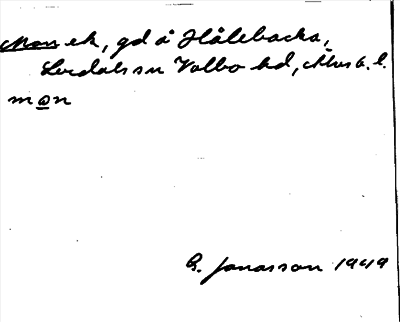 Monek, gd å Hålebacka,
Lerdals sn Valbo hd, Älvsb. l.
mon
G. Jonasson 1949